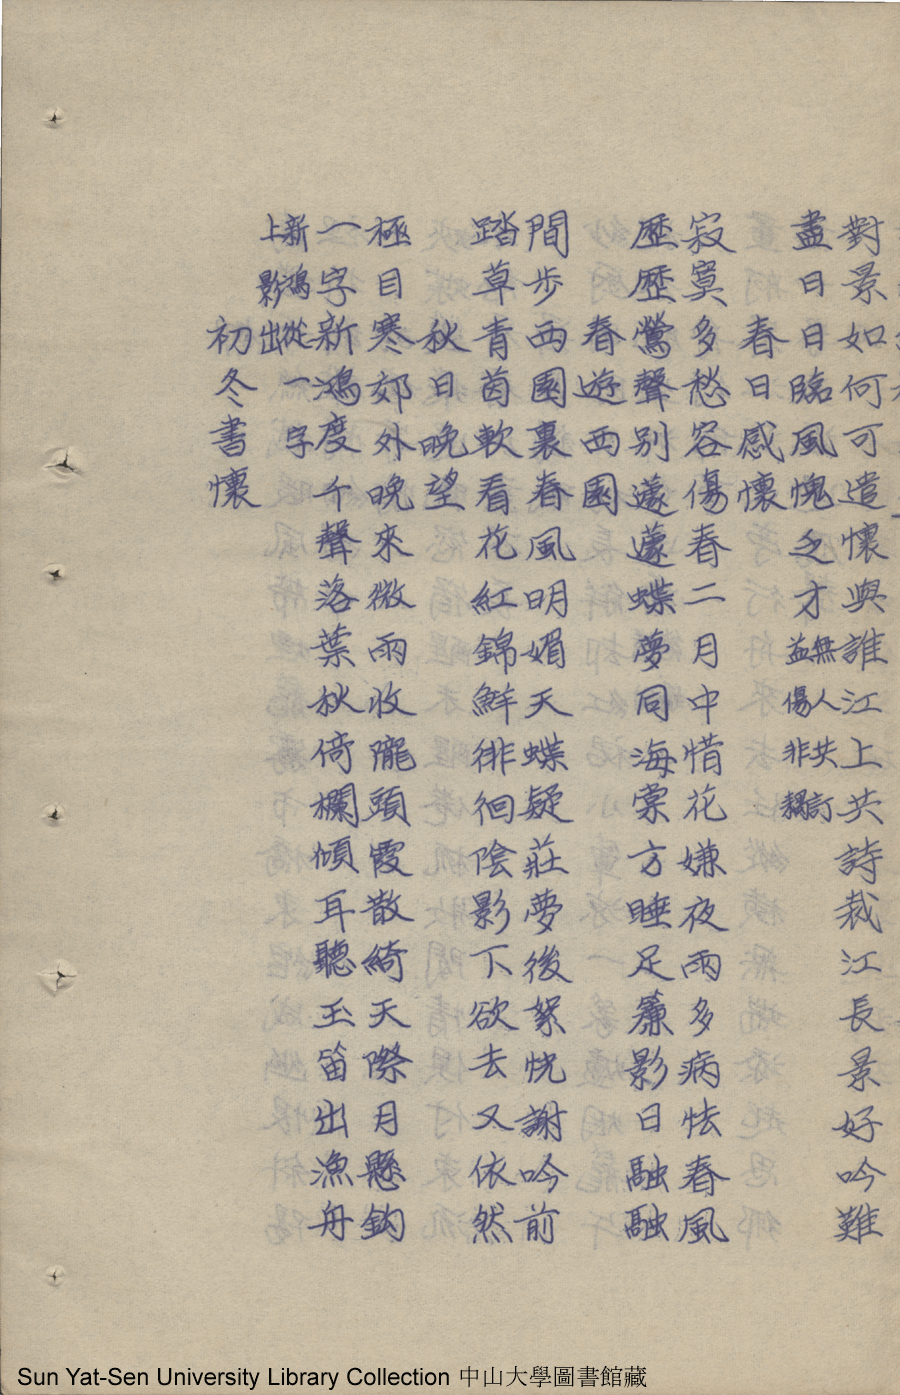 對景如何可遣懷與誰江上共詩裁江長景好吟難
盡日日臨風愧乏才無人共訂益傷非類
春日感懷
寂寞多愁容傷春二月中惜花嫌夜雨多病怯春風
歷歷鶯聲別蘧蘧蝶夢同海棠方睡足簾影日融融
春遊西園
間步西園裏春風明媚天蝶疑莊夢後絮恍謝吟前
踏草青茵軟看花紅錦鮮徘徊陰影下欲去又依然
秋日晚望
極目寒郊外晚來微雨收隴頭霞散綺天際月懸鈎
一字新鴻度千聲落葉秋倚欄傾耳聽玉笛出漁舟
新鴻從一字
上影出
初冬書懷
Sun Yat-Sen University Library Collection 中山大學圖書館藏